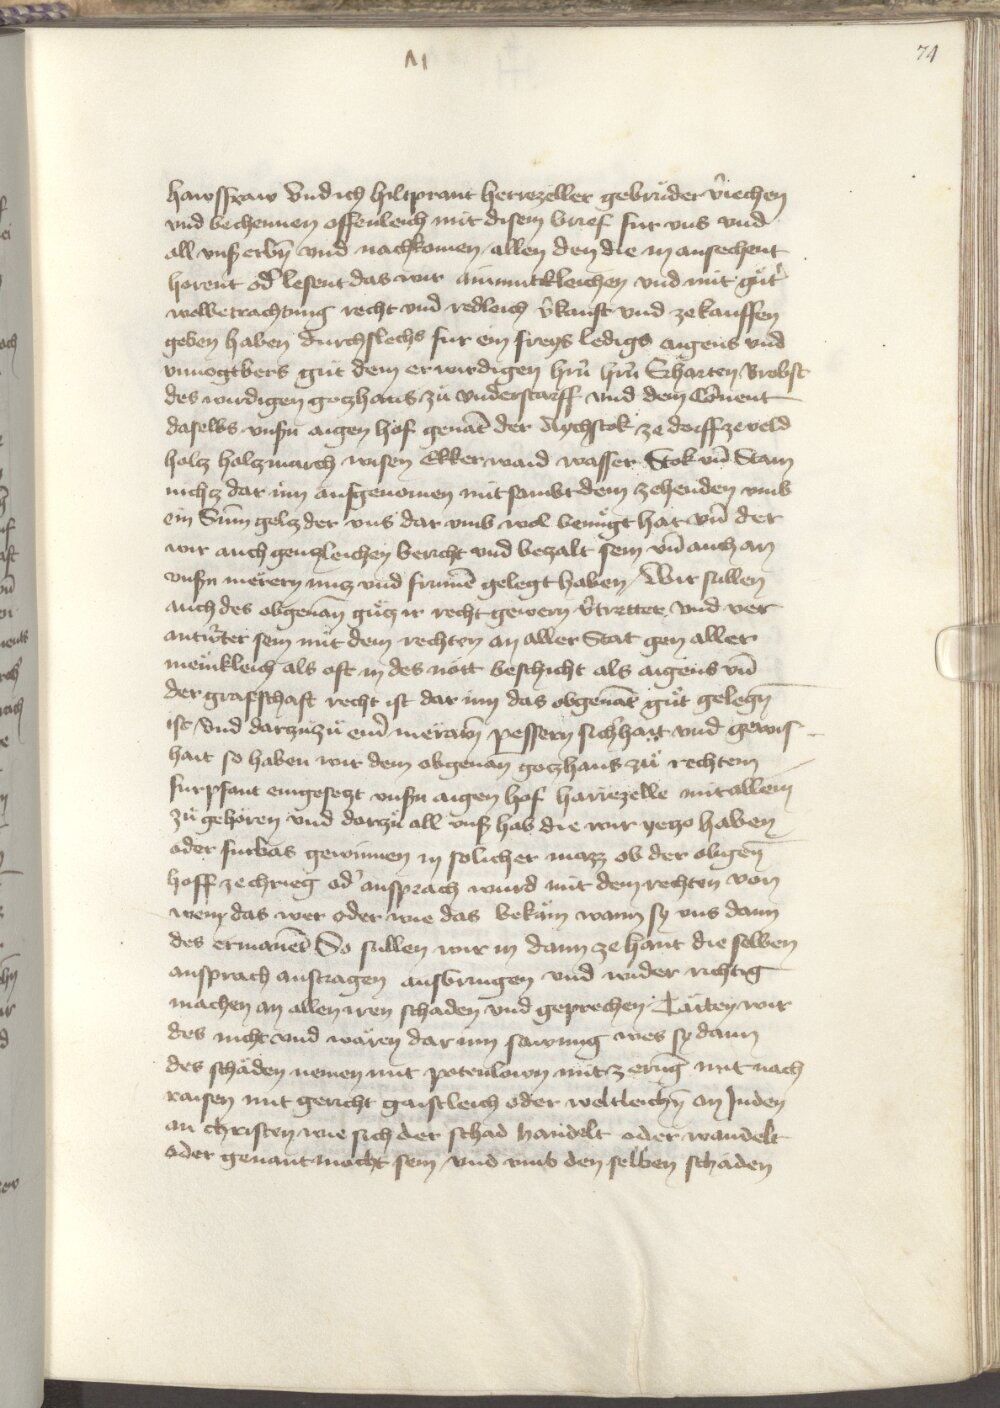 74
hawsfraw Vnd ich hiltprant herrezeller gebrüder v̂iechen
vnd bechennen offenleich mit disem brief fur vns vnd
all vnß erbn̄ vnd nachkomen allen den die in ansechent
horent od' lesent das wir ainmutikleichen vnd mit gůt'
wolbetrachtung recht vnd redleich v̂kauft vnd ze kauffen
geben haben durchslechs fur ein freys ledigs aigens vnd
vnuogtbers gut dem erwirdigen hrn̄ hrn̄ Brobst
des wirdigen goczhaus zů vnderstorff vnd dem Cōuent
daselbs vnßn aigen hof genāt der Aychstok ze dorff ze veld
holcz holczmarch wisen Ekker waid wasser Stok vn̄ Stam
nichcz dar inn ausgenomen mit sambt dem zehenden vmb
ein Sum̄ gelcz der vns dar vmb wol benůgt hat vn̄ der
wir auch genczleichen bericht vnd beczalt sein vn̄ auch an
vnßn merern nucz vnd frumē gelegt haben Wir sullen
auch des obgenan̄ gůcz ir recht gewern v̂tretter vnd ver
antŵter sein mit dem rechten an aller Stat gen aller
meinkleich als oft in des nott beschicht als aigens vn̄
der grafschaft recht ist dar inn das obgenāt gůt gelegn̄
ist Vnd darzuzů ein' merarn̄ pessern sich'hait vnd gewis
hait so haben wir dem obgenan̄ goczhaus zů rechtem
furpfant eingeseczt vnßn aigen hof harrezelle mit allem
zů gehören vnd darzů all vnß hab die wir yeczo haben
oder furbas gewinnen in solicher mazz ob der obgen̄
hoff ze chrieg od' ansprach wurd mit dem rechten von
wem das wer oder wie das bekäm wann sy vns dann
des ermanēt So sullen wir in dann ze hant die selben
ansprach austragen ausbringen vnd wider richtig
machen an allen iren schaden vnd geprechen Tätten wir
des nicht vnd wären dar inn sawmig wes sy dann
des schaden nemen mit potenlown mit zerūg mit nach
raisen mit gericht gaistleich oder weltleichn̄ an Juden
an christen wie sich der schad handelt oder wandelt
oder genant mocht sein vnd vmb den selben schaden